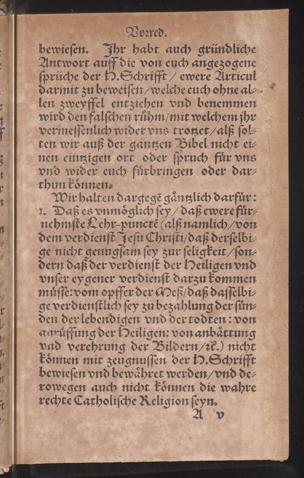 Vorred.
bewiesen. Ihr habt auch gründliche
Antwort auff die von euch angezogene
sprüche der H. Schrifft / ewere Articul
darmit zu beweisen / welche euch ohne al-
len zweyffel entziehen vnd benemmen
wird den falschen rühm / mit welchem jhr
vermessenlich wider vns trotzet / alß sol-
ten wir auß der gantzen Bibel nicht ei-
nen eintzigen ort oder spruch für vns
vnd wider euch fürbringen oder dar-
thun können.
Wir halten dargegẽ gäntzlich darfür:
1. Daß es vnmöglich sey / daß ewere für-
nehmste Lehr-punctẽ (alß namlich / von
dem verdienst Jesu Christi / daß derselbi-
ge nicht genugsam sey zur seligkeit / son-
dern daß der verdienst der Heiligen vnd
vnser eygener verdienst darzu kommen
müsse: vom opffer der Meß / daß dasselbi-
ge verdienstlich sey zu bezahlung der sün-
den der lebendigen vnd der todten: von
anrüffung der Heiligen: von anbättung
vnd verehrung der Bildern / ꝛc.) nicht
können mit zeugnussen der H. Schrifft
bewiesen vnd bewähret werden / vnd de-
rowegen auch nicht können die wahre
rechte Catholische Religion seyn.
A v